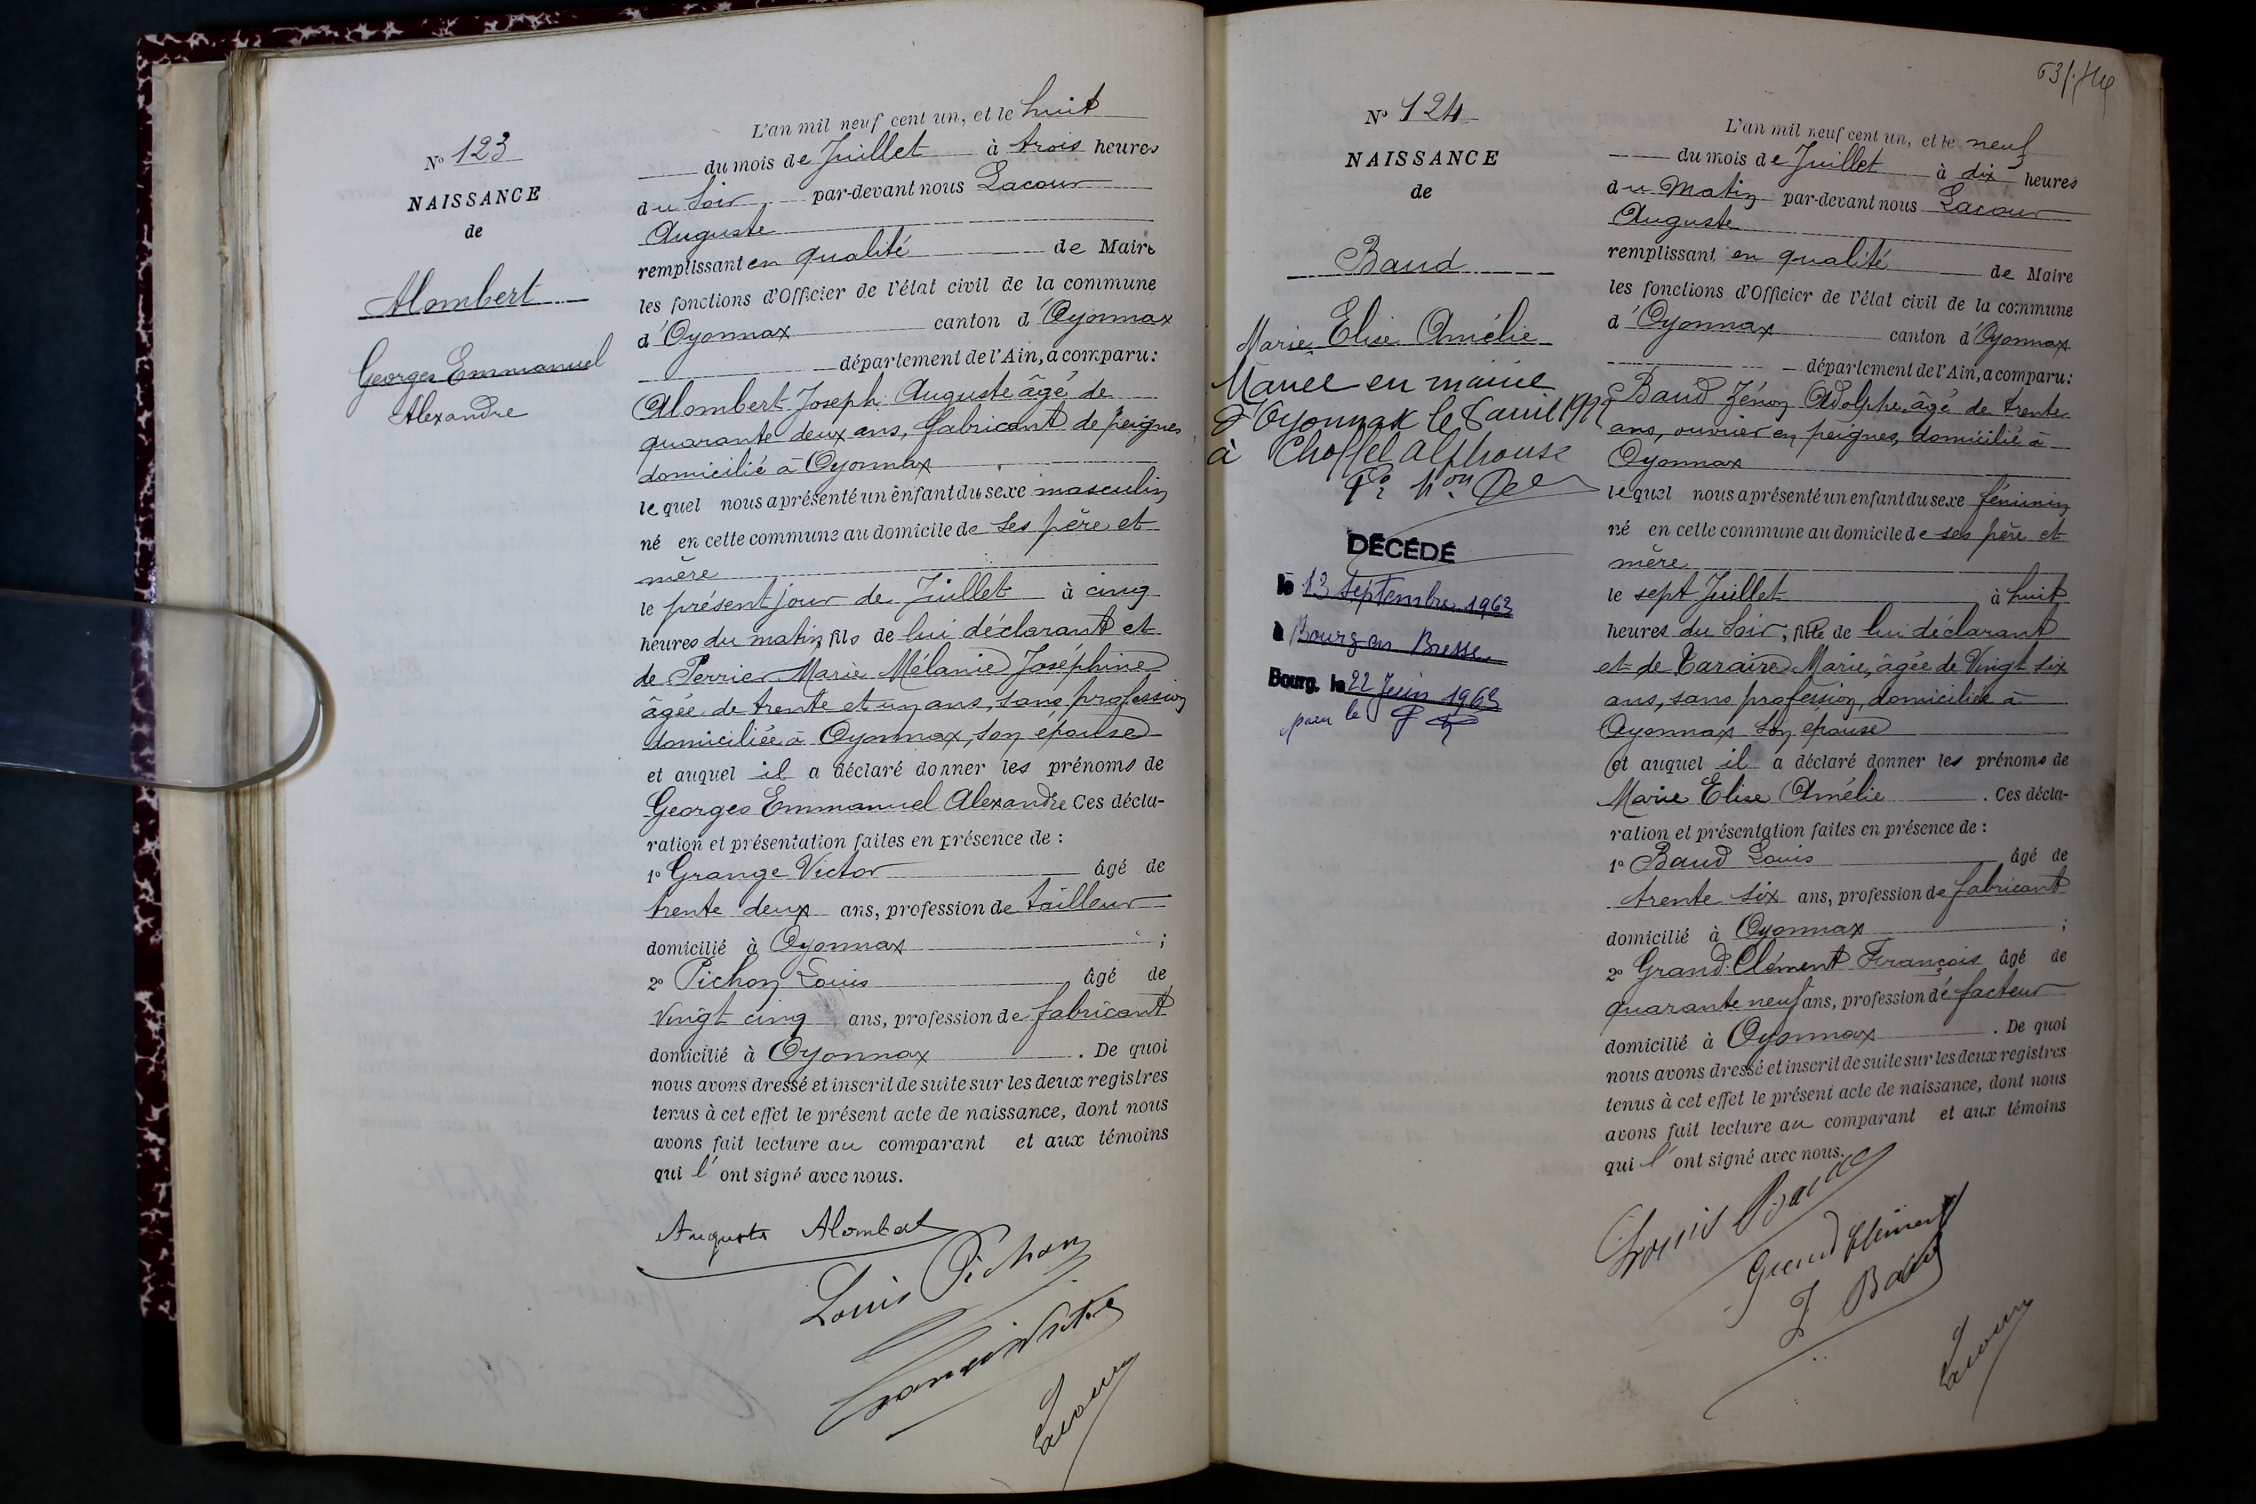 N° 123
NAISSANCE
de
Alombert
Georges Emmanuel
Alexandre
L'an mil neuf cent un, et le huit
du mois de Juillet à trois heures
du Soir par-devant nous Lacour
Auguste
remplissant en qualité de Maire
les fonctions d'Officier de l'état civil de la commune
d'Oyonnax canton d'Oyonnax
département de l'Ain, a comparu:
Alombert Joseph Auguste âgé de
quarante deux ans, fabricant de peignes
domicilié à Oyonnax
le quel nous a présenté un enfant du sexe masculin
né en cette commune au domicile de ses père et
mère
le présent jour de Juillet à cinq
heures du matin, fils de lui déclarant et
de Perrier Marie Mélanie Joséphine
âgée de trente et un ans, sans profession
domiciliée à Oyonnax, son épouse
et auquel il a déclaré donner les prénoms de
Georges Emmanuel Alexandre Ces décla-
ration et présentation faites en présence de :
1° Grange Victor âgé de
trente deux ans, profession de tailleur
domicilié à Oyonnax ;
2° Pichon Louis âgé de
Vingt cinq ans, profession de fabricant
domicilié à Oyonnax . De quoi
nous avons dressé et inscrit de suite sur les deux registres
tenus à cet effet le présent acte de naissance, dont nous
avons fait lecture au comparant et aux témoins
qui l'ont signé avec nous.
Auguste Alombert
Louis Pichon
Lacour
63
N° 124
NAISSANCE
de
Baud
Marie Elise Amélie
Mariée en mairie
d'Oyonnax le 8 avril 19
à Choffel Alphonse
DÉCÉDÉ
le 13 Septembre 1963
à Bourg en Bresse
Bourg, le 22 Juin 1963
pour le
L'an mil neuf cent un, et le neuf
du mois de Juillet à dix heures
du Matin par-devant nous Lacour
Auguste
remplissant en qualité de Maire
les fonctions d'Officier de l'état civil de la commune
d'Oyonnax canton d'Oyonnax
département de l'Ain, a comparu:
Baud Zénon Adolphe, âgé de trente
ans, ouvrier en peignes, domicilié à
Oyonnax
le quel nous a présenté un enfant du sexe féminin
né en cette commune au domicile de ses père et
mère
le sept Juillet à huit
heures du Soir, fille de lui déclarant
et de Taraire Marie, âgée de Vingt six
ans, sans profession, domiciliée à
Oyonnax son épouse
et auquel il a déclaré donner les prénoms de
Marie Elise Amélie . Ces décla-
ration et présentation faites en présence de :
1° Baud Louis âgé de
trente six ans, profession de fabricant
domicilié à Oyonnax ;
2° Grand Clément François âgé de
quarante neuf ans, profession de facteur
domicilié à Oyonnax . De quoi
nous avons dressé et inscrit de suite sur les deux registres
tenus à cet effet le présent acte de naissance, dont nous
avons fait lecture au comparant et aux témoins
qui l'ont signé avec nous.
Louis Baud
Grand Clément
Z Baud
Lacour